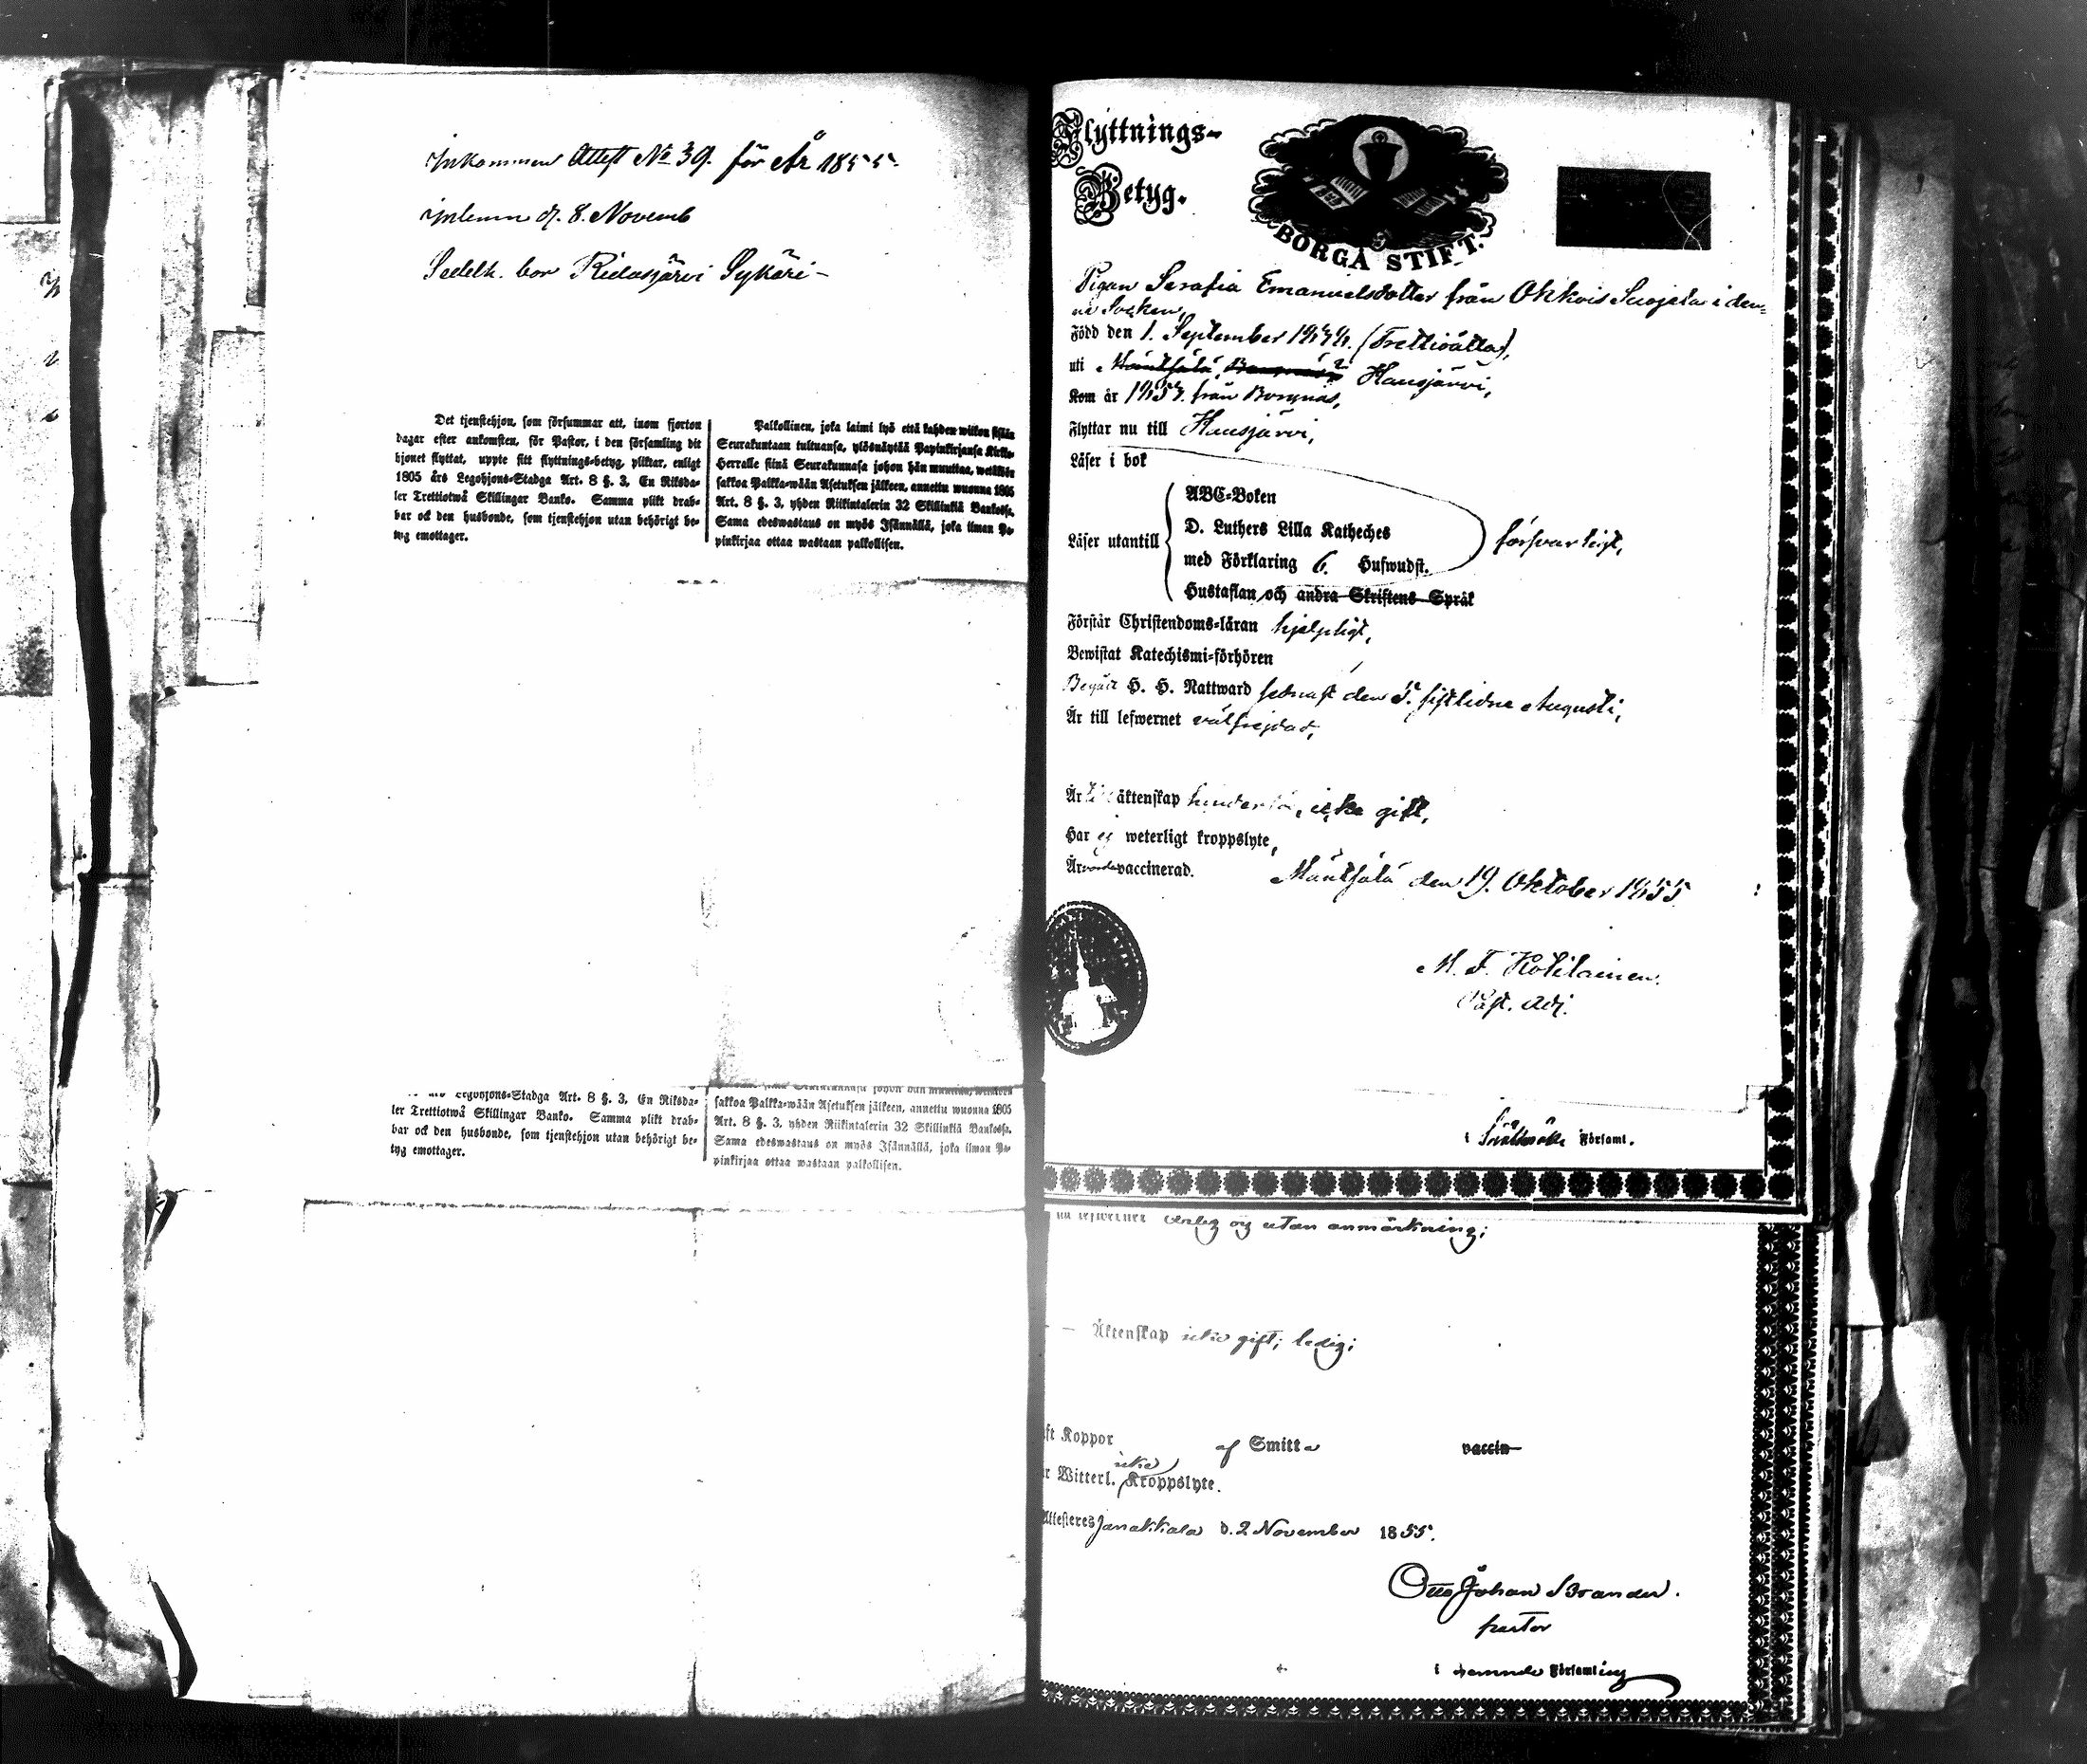 Inkommen Attest No 39. för År 1855.
inlemn d. 8. Novemb
Sedelh. bor Ridasjärvi Sykäri -
Det tjenstehjon, som försummar att, inom fjorton
dagar efter ankomsten, för Pastor, i den församling dit
hjonet flyttat, uppte sitt flyttnings-betyg, pliktar, enligt
1805 års Legohjons-Stadga Art. 8 §. 3, En Riksda-
ler Trettiotwå Skillingar Banko. Samma plikt drab-
bar ock den husbonde, som tjenstehjon utan behörigt be-
tyg emottager.
Palkollinen, joka laimi lyö että kahden wiikon sisään
Seurakuntaan tultuansa, ylösnäyttää Papinkirjansa Kirkko-
Herralle siinä Seurakunnasa johon hän muuttaa, wetäköön
sakkoa Palkka-wään Asetuksen jälkeen, annettu wuonna 1805
Art. 8 §. 3, yhden Riikintalerin 32 Skillinkiä Bankossa.
Sama edeswastaus on myös Isännällä, joka ilman Pa-
pinkirjaa ottaa wastaan palkollisen.
Legohjons-Stadga Art. 8 §. 3, En Riksda-
ler Trettiotwå Skillingar Banko. Samma plikt drab-
bar ock den husbonde, som tjenstehjon utan behörigt be-
tyg emottager.
sakkoa Palkka-wään Asetuksen jälkeen, annettu wuonna 1805
Art. 8 §. 3, yhden Riikintalerin 32 Skillinkiä Bankossa.
Sama edeswastaus on myös Isännällä, joka ilman Pa-
pinkirjaa ottaa wastaan palkollisen.
Flyttnings-
Betyg.
BORGÅ STIFT.
Pigan Serafia Emanuelsdotter från Ohkois Suojala i den-
na Socken,
Född den 1. September 1838. (Trettioåtta),
uti Mäntsälä, Hausjärvi,
Kom år 1853. från Borgnäs,
Flyttar nu till Hausjärvi,
Läser i bok
Läser utantill
ABC-Boken
D. Luthers Lilla Katheches
med Förklaring 6. Hufwudst.
Hustaflan och andra Skriftens Språk
försvarligt,
Förstår Christendoms-läran hjelpligt,
Bewistat Katechismi-förhören
Begått H. H. Nattward senast den 5. sistlidne Augusti,
Är till lefwernet välfrejdad,
Är till äktenskap hinderlös, icke gift,
Har ej weterligt kroppslyte,
Är vaccinerad.
Mäntsälä den 19. Oktober 1855
M. F. Kotilainen.
Past. Adj.
i Församl.
ärlig og utan anmärkning;
Äktenskap icke gift; ledig;
Koppor af Smitta vaccin
icke
Witterl. Kroppslyte.
Attesteres Janakkala d. 2 November 1855.
Otto Johan Brander.
pastor
i nemnde Församling